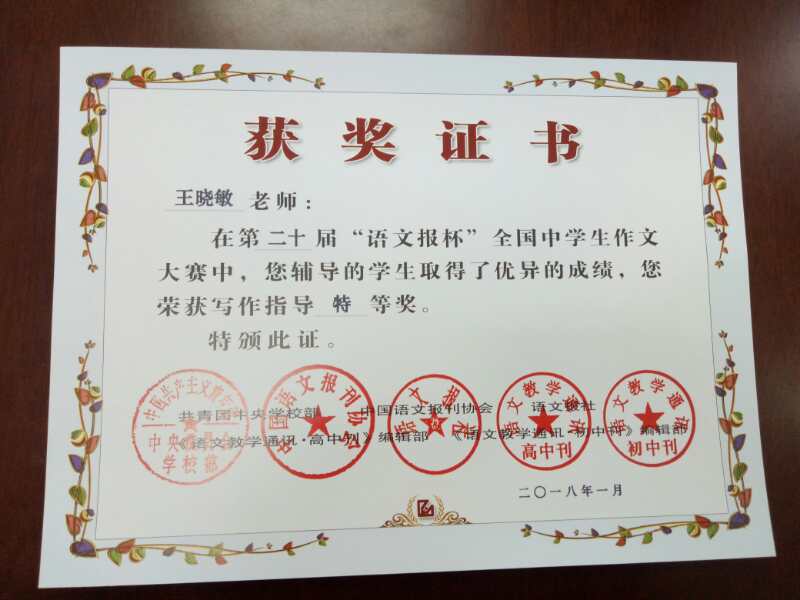 获奖证书
王晓敏 老师：
在第二十届“语文报杯”全国中学生作文
大赛中，您辅导的学生取得了优异的成绩，您
荣获写作指导 特 等奖。
特颁此证。
共青团中央学校部 中国语文报刊协会 语文报社
《语文教学通讯·高中刊》编辑部 《语文教学通讯·初中刊》编辑部
中央
学校部
中国语文报刊协会
语文报社
语文教学通讯
高中刊
语文教学通讯
初中刊
二〇一八年一月